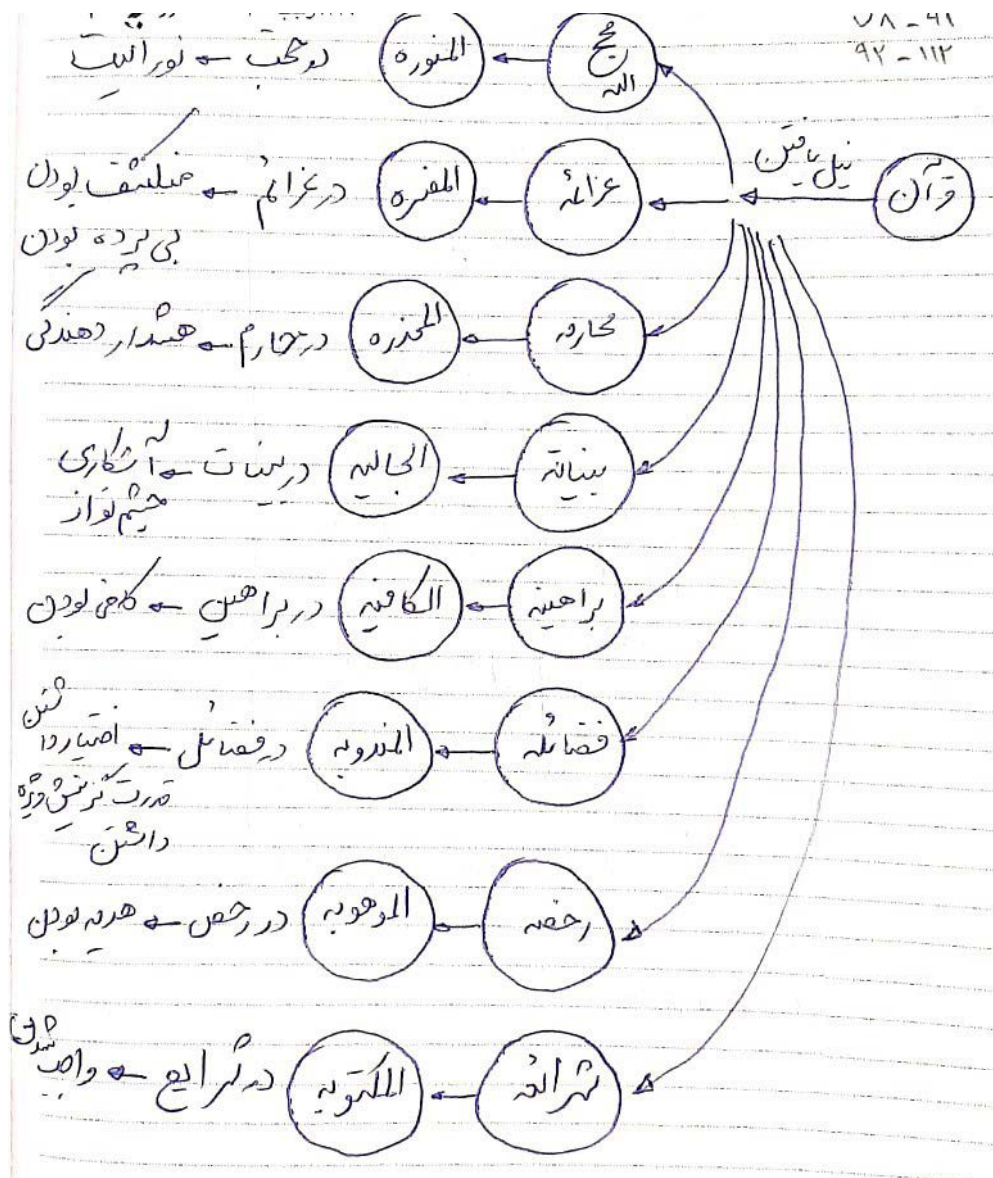 ۷۸ - ۹۱
۹۲ - ۱۱۲
قرآن
نیل یافتن
حجج الله
المنوره
در حجت ← نورانیت
عزائمه
المفسره
در عزائم ← منکشف بودن
بی پرده بودن
محارمه
المحذره
در محارم ← هشدار دهندگی
بیناته
الجالیه
در بینات ← آشکاری
که چشم نواز
براهینه
الکافیه
در براهین ← کافی بودن
فضائله
المندوبه
در فضائل ← اختیار داشتن
قدرت گزینش ویژه
داشتن
رخصه
الموهوبه
در رخص ← هدیه بودن
شرائعه
المکتوبه
در شرایع ← واجب شدن